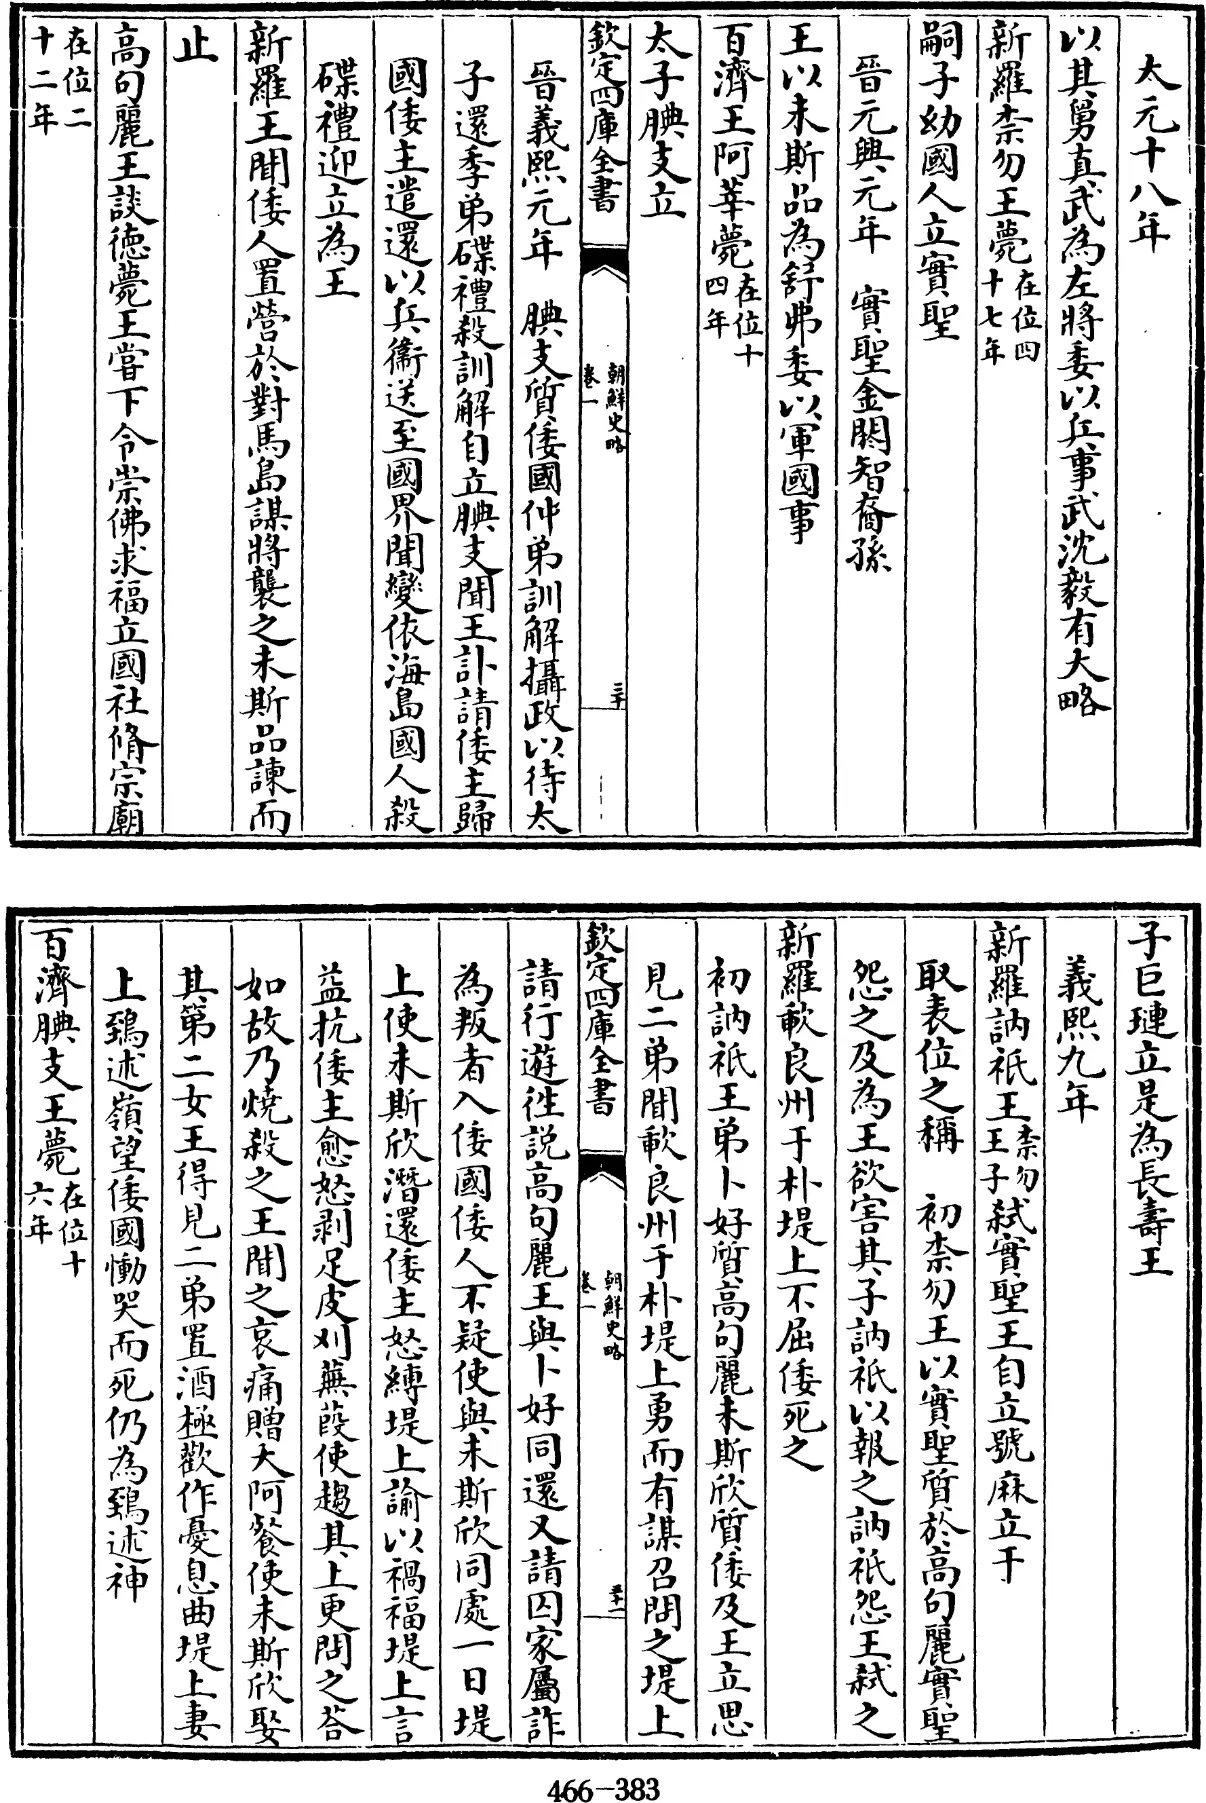 太元十八年
以其舅真武為左將委以兵事武沈毅有大略
新羅柰勿王薨在位四十七年
嗣子幼國人立實聖
晉元興元年　實聖金閼智裔孫
王以未斯品為舒弗委以軍國事
百濟王阿莘薨在位十四年
太子腆支立
欽定四庫全書　朝鮮史略卷一　三十
晉義熙元年　腆支質倭國仲弟訓解攝政以待太
子還季弟碟禮殺訓解自立腆支聞王訃請倭主歸
國倭主遣還以兵衞送至國界聞變依海島國人殺
碟禮迎立為王
新羅王聞倭人置營於對馬島謀將襲之未斯品諫而
止
高句麗王談德薨王嘗下令崇佛求福立國社脩宗廟
在位二十二年
子巨璉立是為長壽王
義熙九年
新羅訥祇王柰勿王子弑實聖王自立號麻立干
取表位之稱　初柰勿王以實聖質於高句麗實聖
怨之及為王欲害其子訥祇以報之訥祇怨王弑之
新羅歃良州于朴堤上不屈倭死之
初訥祇王弟卜好質高句麗未斯欣質倭及王立思
見二弟聞歃良州于朴堤上勇而有謀召問之堤上
欽定四庫全書　朝鮮史略卷一　三十一
請行遊徃説高句麗王與卜好同還又請囚家屬詐
為叛者入倭國倭人不疑使與未斯欣同處一日堤
上使未斯欣潛還倭主怒縛堤上諭以禍福堤上言
益抗倭主愈怒剥足皮刈蕪葭使趨其上更問之荅
如故乃燒殺之王聞之哀痛贈大阿飡使未斯欣娶
其第二女王得見二弟置酒極歡作憂息曲堤上妻
上鵄述嶺望倭國慟哭而死仍為鵄述神
百濟腆支王薨在位十六年
466-383